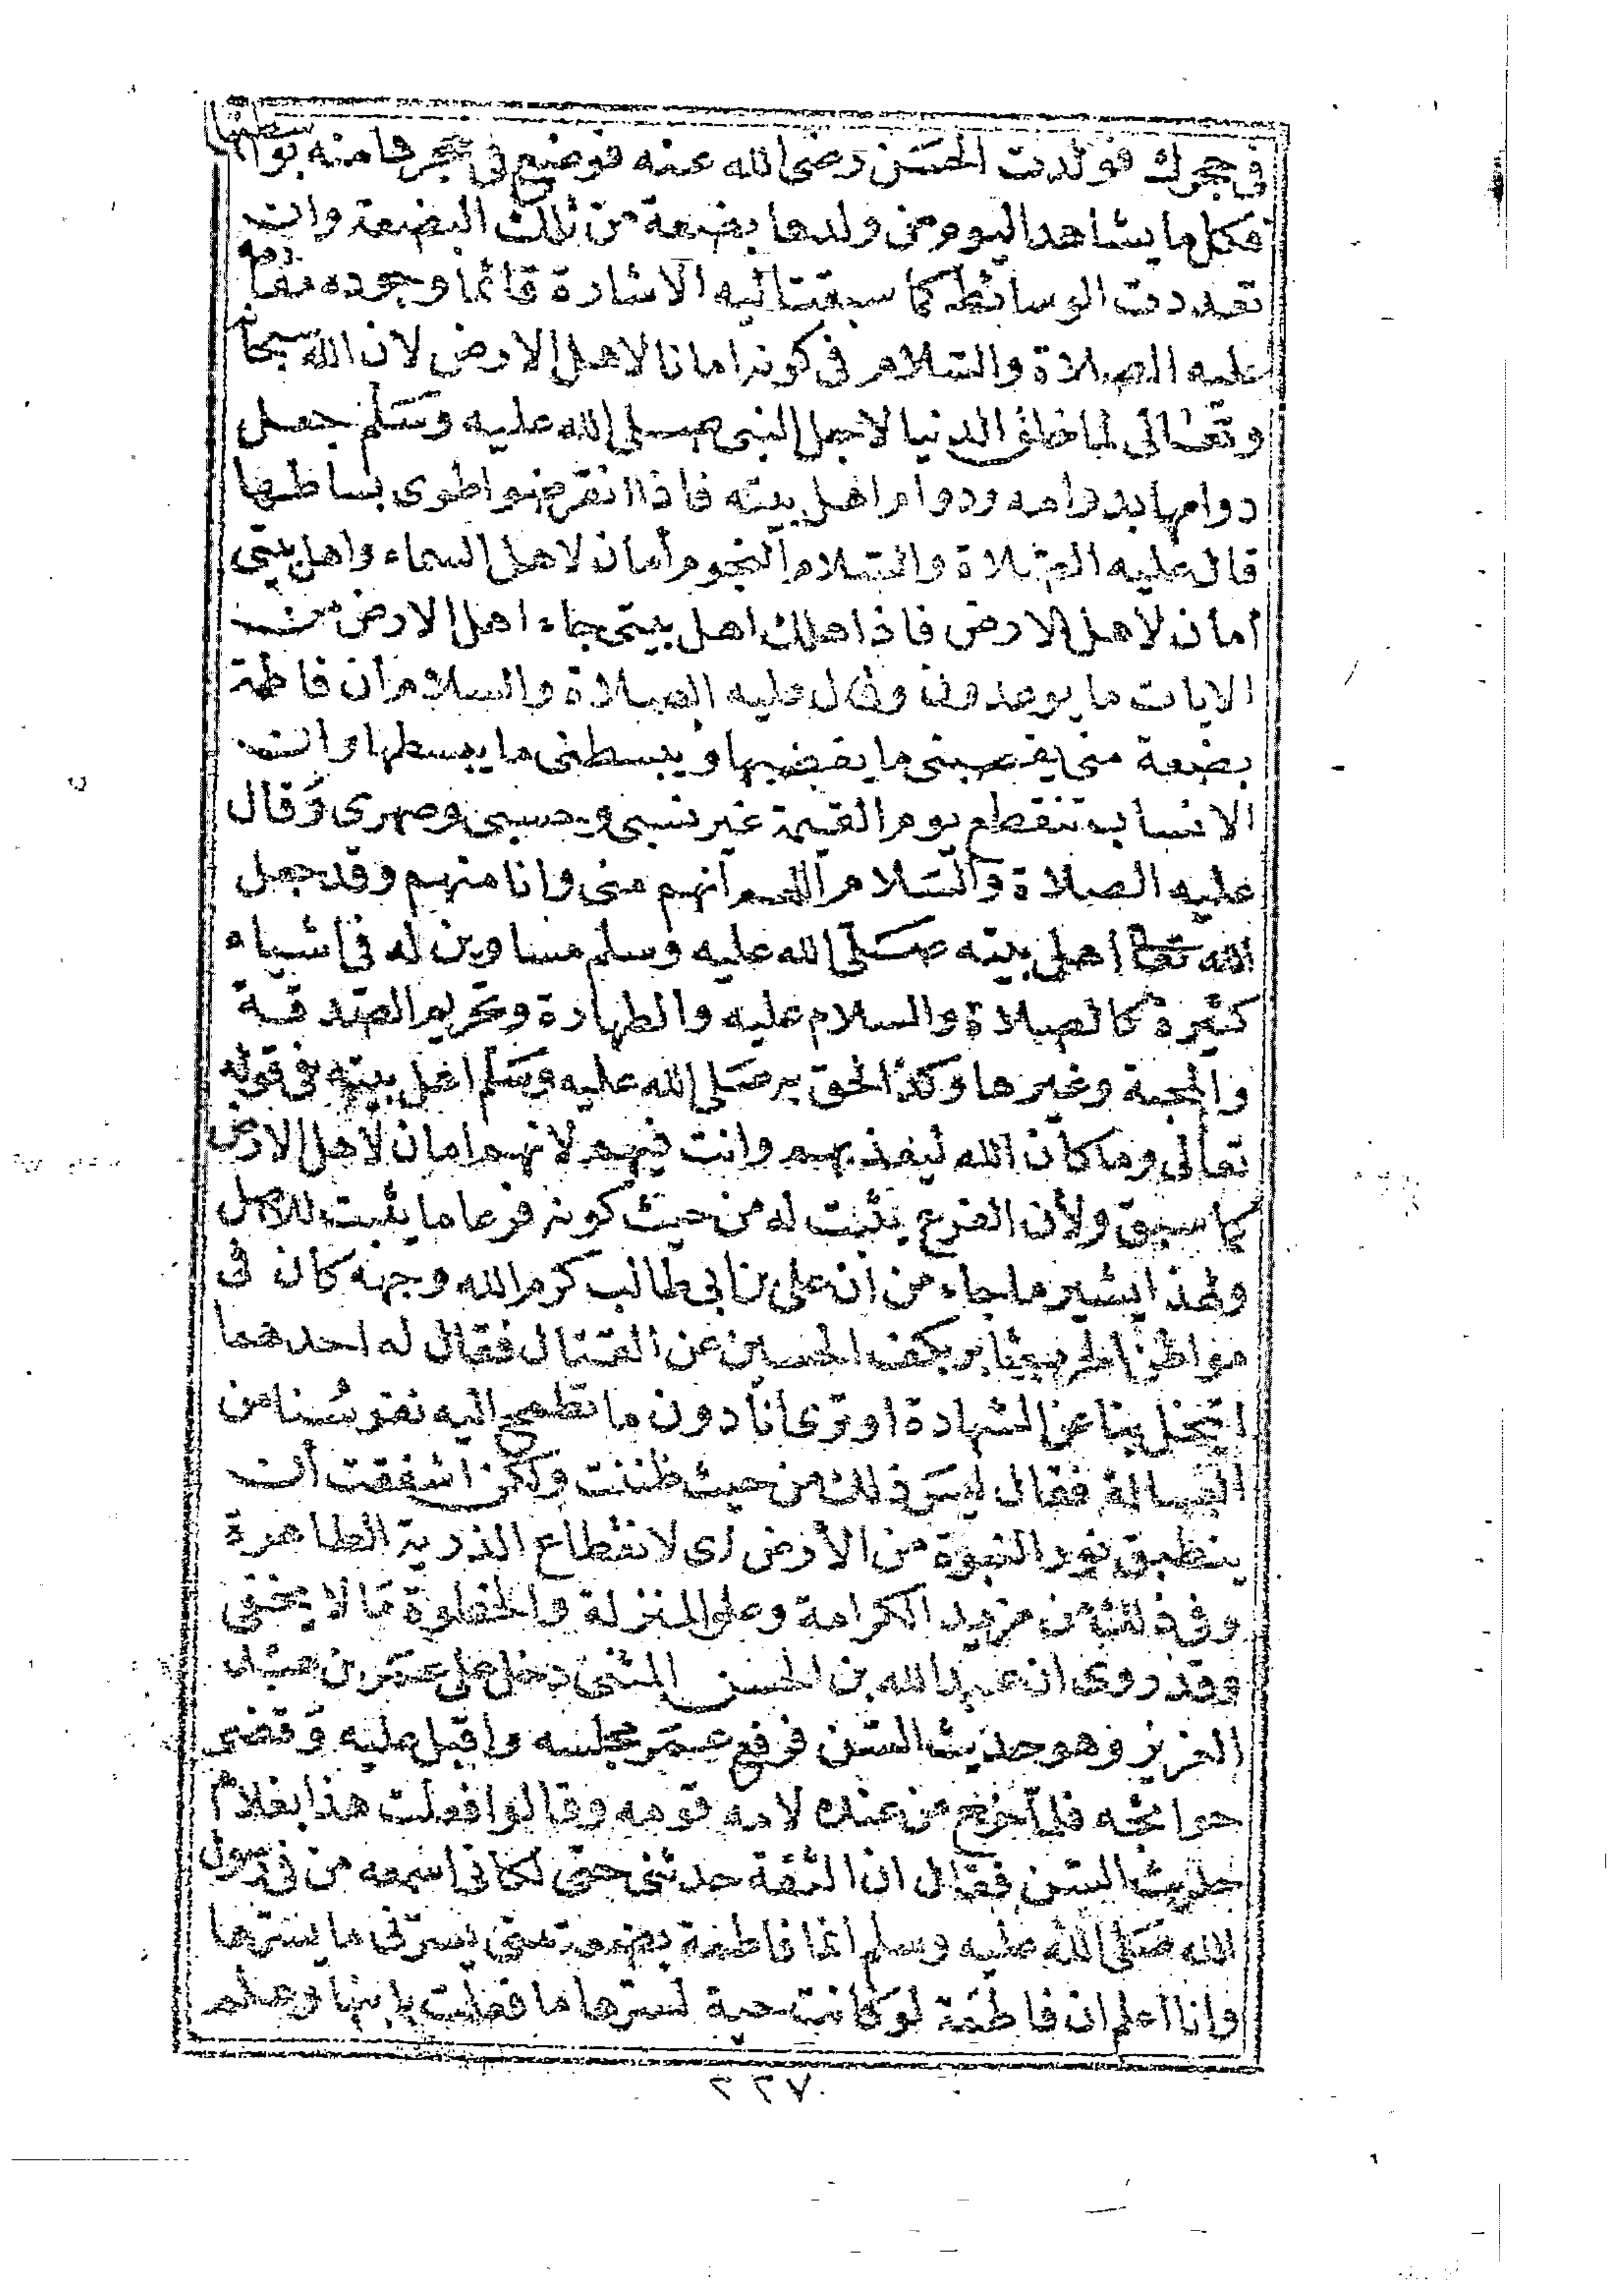 في حجرك فولدت الحسن رضي الله عنه فوضع في حجرها منه بواسطتها
فكل ما يشاهد اليوم من ولدها بضعة من تلك البضعة وان
تعددت الوسائط كما سبقت اليه الاشارة قائما وجوده مقامه
عليه الصلاة والسلام في كونه امانا لاهل الارض لان الله سبحا
وتعالى لما خلق الدنيا لاجل النبي صلى الله عليه وسلم جعل
دوامها بدوامه ودوام اهل بيته فاذا انقرضوا طوى بساطها
قال عليه الصلاة والسلام النجوم أمان لاهل السماء واهل بيتي
أمان لاهل الارض فاذا هلك اهل بيتي جاء اهل الارض من
الايات ما يوعدون وقال عليه الصلاة والسلام ان فاطمة
بضعة مني يغضبني ما يغضبها ويبسطني ما يبسطها وان
الانساب تنقطع يوم القيمة غير نسبي وحسبي وصهري وقال
عليه الصلاة والسلام اللهم انهم مني وانا منهم وقد جعل
الله تعا اهل بيته صلى الله عليه وسلم مساوين له في اشياء
كثيرة كالصلاة والسلام عليه والطهارة وتحريم الصدقة
والمحبة وغيرها وكذا لحق به صلى الله عليه وسلم اهل بيته في قوله
تعالى وما كان الله ليعذبهم وانت فيهم لانهم امان لاهل الارض
كما سبق ولأن الفرع يثبت له من حيث كونه فرعا ما يثبت للاصل
ولهذا يشير ما جاء من ان علي بن ابي طالب كرم الله وجهه كان في
مواطن الحرب يكف الحسنين عن القتال فقال له احدهما
اتبخل بنا عن الشهادة او ترى انا دون ما تطمح اليه نفوسنا من
البسالة فقال ليس ذلك من حيث ظننت ولكن اشفقت ان
ينطبق نور النبوة من الأرض اى لانقطاع الذرية الطاهرة
وفي ذلك من مزيد الكرامة وعلو المنزلة والحظوة ما لا يخفى
وقد روى ان عبد الله بن الحسن المثنى دخل على عمر بن عبد
العزيز وهو حديث السن فرفع عمر مجلسه واقبل عليه وقضى
حوائجه فلما خرج من عنده لامه قومه وقالوا فعلت هذا بغلام
حديث السن فقال ان الثقة حدثني حتى لكاني اسمعه من في رسول
الله صلى الله عليه وسلم انما فاطمة بضعة مني يسرني ما يسرها
وانا اعلم ان فاطمة لو كانت حية لسرها ما فعلت بابنها وعلم
٢٢٧